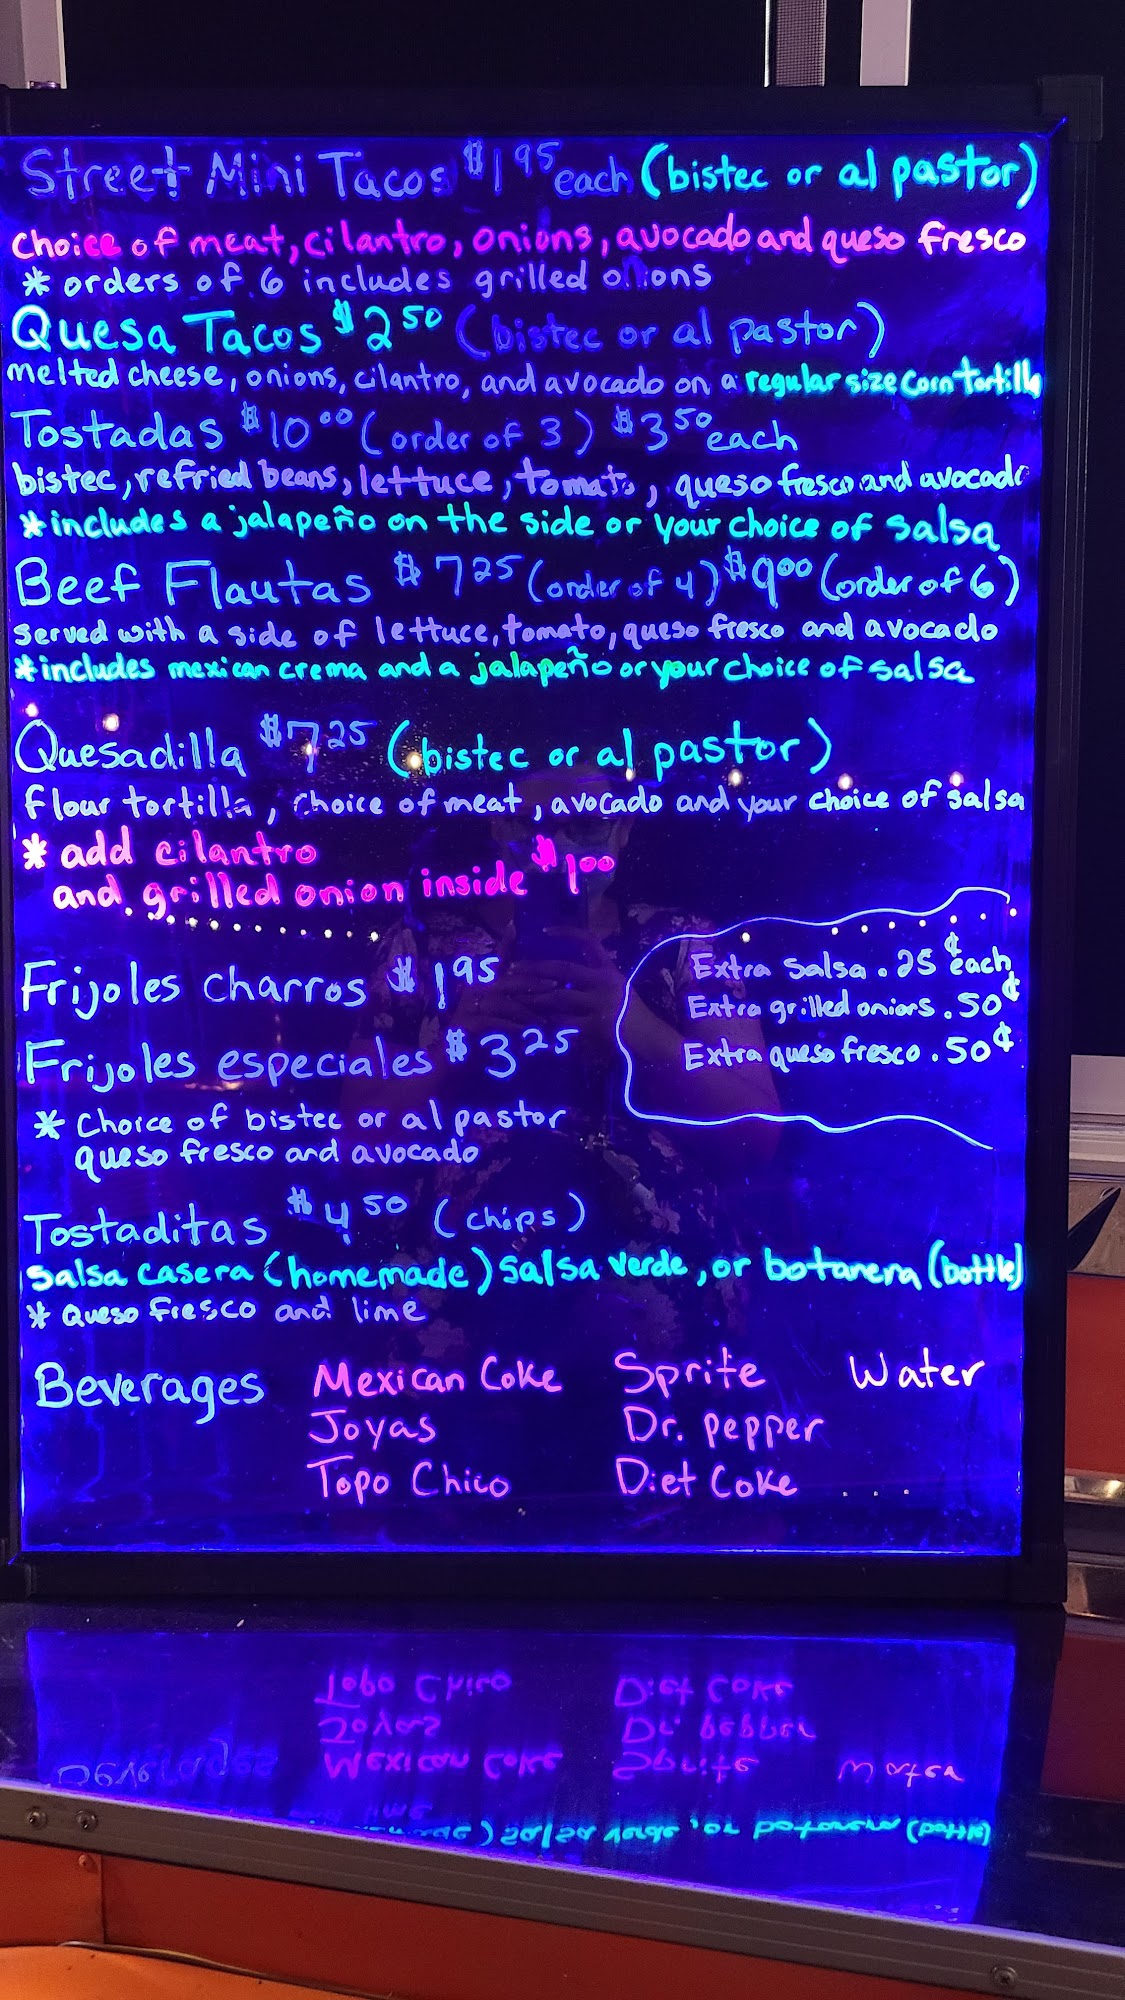 Street Mini Tacos $1 95 each (bistec or al pastor)
choice of meat, cilantro, onions, avocado and queso fresco
* orders of 6 includes grilled onions
Quesa Tacos $2 50 (bistec or al pastor)
melted cheese, onions, cilantro, and avocado on a regular size corn tortilla
Tostadas $10 00 (order of 3) $3 50 each
bistec, refried beans, lettuce, tomato, queso fresco and avocado
*includes a jalapeño on the side or your choice of salsa
Beef Flautas $7 25 (order of 4) $9 00 (order of 6)
served with a side of lettuce, tomato, queso fresco and avocado
*includes mexican crema and a jalapeño or your choice of salsa
Quesadilla $7 25 (bistec or al pastor)
flour tortilla, choice of meat, avocado and your choice of salsa
* add cilantro
and grilled onion inside $1 00
Frijoles charros $1 95
Extra Salsa .25¢ each
Extra grilled onions .50¢
Extra queso fresco .50¢
Frijoles especiales $3 25
* Choice of bistec or al pastor
queso fresco and avocado
Tostaditas $4 50 (chips)
Salsa casera (homemade) Salsa verde, or botanera (bottle)
* Queso fresco and lime
Beverages Mexican Coke Sprite Water
Joyas Dr. Pepper
Topo Chico Diet Coke ...